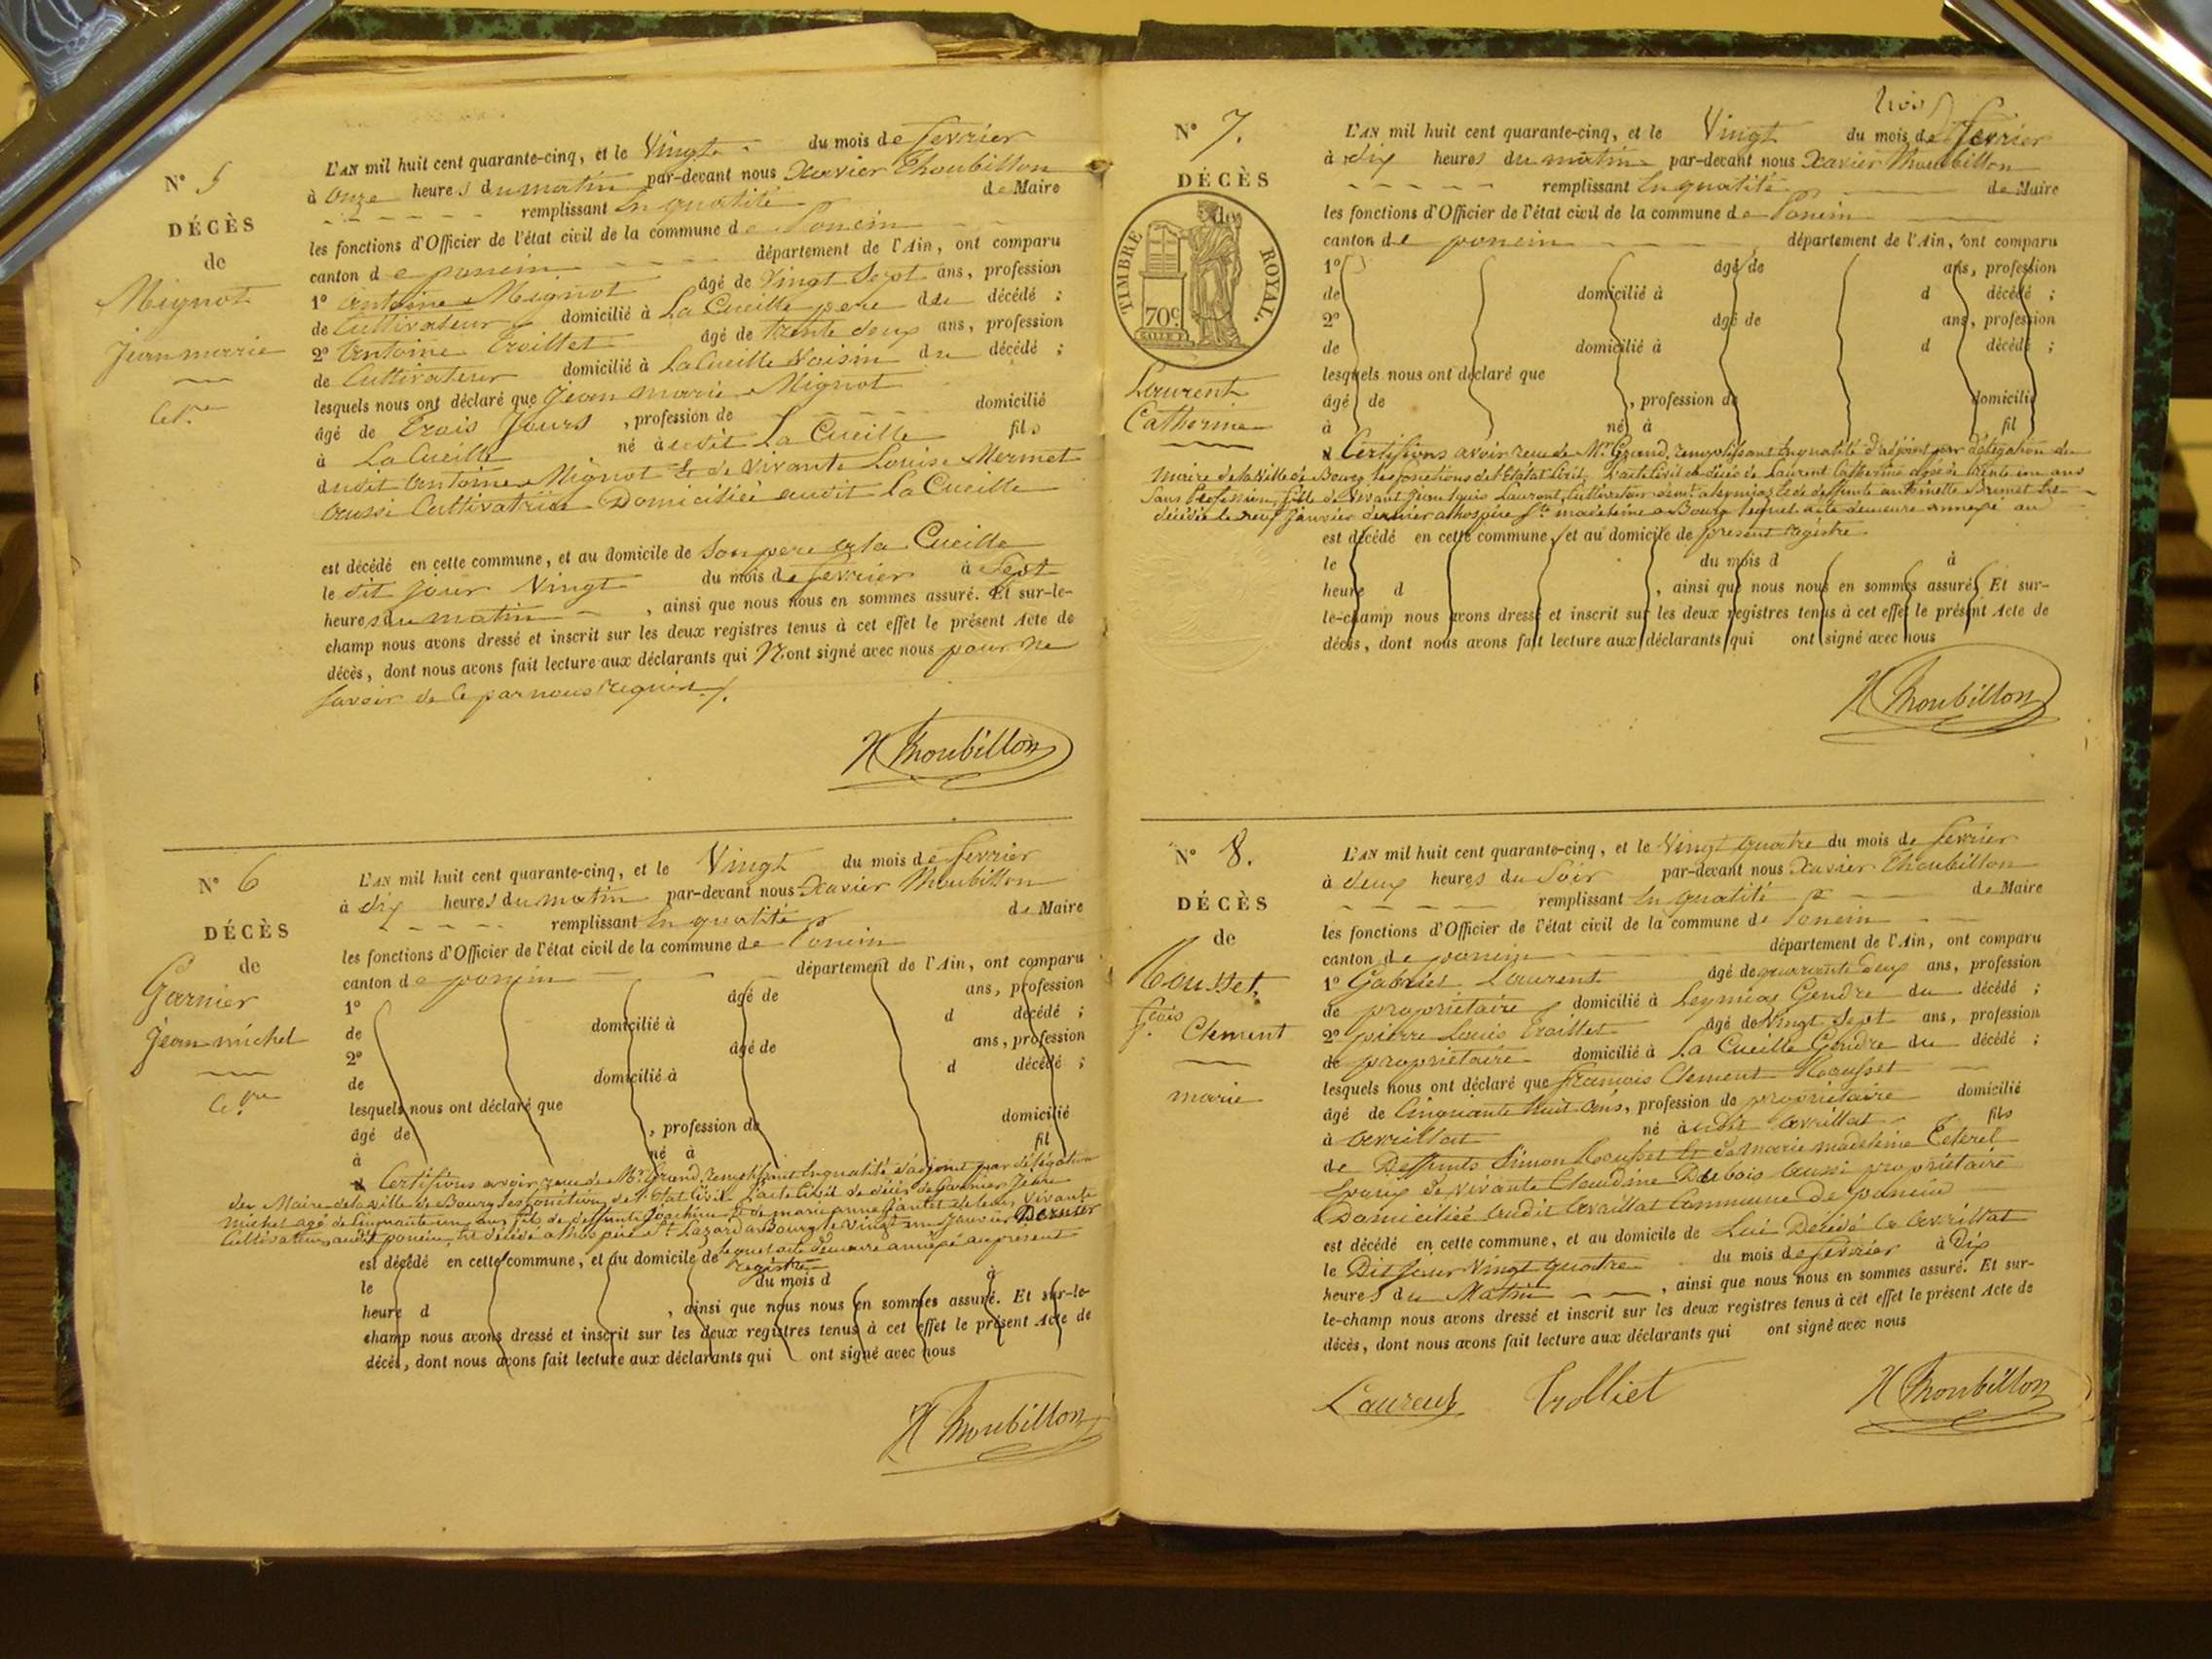 N° 5
DÉCÈS
de
Mignot
Jean marie
L'AN mil huit cent quarante-cinq, et le Vingt du mois de fevrier
à onze heures du matin par-devant nous Xavier Thoubillon
remplissant en qualité de Maire
les fonctions d'Officier de l'état civil de la commune de Poncin
canton de poncin département de l'Ain, ont comparu
1° antoine Mignot âgé de Vingt Sept ans, profession
de Cultivateur domicilié à La Cueille pere du décédé ;
2° antoine Trolliet âgé de trente deux ans, profession
de Cultivateur domicilié à La Cueille Voisin du décédé ;
lesquels nous ont déclaré que Jean marie Mignot
âgé de trois Jours , profession de domicilié
à La Cueille né audit La Cueille fils
dudit antoine Mignot Et de Vivante Louise Mermet
aussi Cultivatrice Domiciliée audit La Cueille
est décédé en cette commune, et au domicile de Son pere a la Cueille
le dit jour Vingt du mois de fevrier à Sept
heures du matin , ainsi que nous nous en sommes assuré. Et sur-le-
champ nous avons dressé et inscrit sur les deux registres tenus à cet effet le présent Acte de
décès, dont nous avons fait lecture aux déclarants qui N'ont signé avec nous pour ne
Savoir de Ce par nous requis.
X Thoubillon
N° 6
DÉCÈS
de
Garnier
Jean michel
L'AN mil huit cent quarante-cinq, et le Vingt du mois de fevrier
à dix heures du matin par-devant nous Xavier Thoubillon
remplissant en qualité de Maire
les fonctions d'Officier de l'état civil de la commune de Poncin
canton de poncin département de l'Ain, ont comparu
1° âgé de ans, profession
de domicilié à d décédé ;
2° âgé de ans, profession
de domicilié à d décédé ;
lesquels nous ont déclaré que
âgé de , profession de domicilié
à né à fil
Certifions avoir reçu de Mr Grand, remplissant en qualité d'adjoint par délégation
du Maire de la ville de Bourg les fonctions de l'Etat Civil L'acte Civil de décès de Garnier Jean
michel agé de Cinquante un ans fils de deffunt Joachim Et de marie anne de leur Vivante
Cultivateurs audit poncin, décédé a l'hospice St Lazard a Bourg le Vingt un Janvier Dernier
lequel acte demeure annexé au present
registre
est décédé en cette commune, et au domicile de
le du mois d à
heure d , ainsi que nous nous en sommes assuré. Et sur-le-
champ nous avons dressé et inscrit sur les deux registres tenus à cet effet le présent Acte de
décès, dont nous avons fait lecture aux déclarants qui ont signé avec nous
X Thoubillon
trois
N° 7.
DÉCÈS
de
TIMBRE ROYAL.
70c.
Laurent
Catherine
L'AN mil huit cent quarante-cinq, et le Vingt du mois de fevrier
à dix heures du matin par-devant nous Xavier Thoubillon
remplissant en qualité de Maire
les fonctions d'Officier de l'état civil de la commune de Poncin
canton de poncin département de l'Ain, ont comparu
1° âgé de ans, profession
de domicilié à d décédé ;
2° âgé de ans, profession
de domicilié à d décédé ;
lesquels nous ont déclaré que
âgé de , profession de domicilié
à né à fil
Certifions avoir reçu de Mr Grand, remplissant en qualité d'adjoint par délégation du
maire de la Ville de Bourg, les fonctions de l'Etat Civil, L'acte Civil de décès de Laurent Catherine agée de trente un ans
Sans Profession, fille de Vivant Jean Louis Laurent, Cultivateur a Leymiaz Et de deffunte antoinette
décédée le neuf Janvier dernier a l'hospice Ste madeleine a Bourg lequel acte demeure annexé au
est décédé en cette commune, et au domicile de present registre
le du mois d à
heure d , ainsi que nous nous en sommes assuré. Et sur-
le-champ nous avons dressé et inscrit sur les deux registres tenus à cet effet le présent Acte de
décès, dont nous avons fait lecture aux déclarants qui ont signé avec nous
X Thoubillon
N° 8.
DÉCÈS
de
Rousset,
fcois
Clement
marie
L'AN mil huit cent quarante-cinq, et le Vingt quatre du mois de fevrier
à deux heures du Soir par-devant nous Xavier Thoubillon
remplissant en qualité de Maire
les fonctions d'Officier de l'état civil de la commune de Poncin
canton de poncin département de l'Ain, ont comparu
1° Gabriel Laurent âgé de quarante deux ans, profession
de propriétaire domicilié à Leymiaz Gendre du décédé ;
2° pierre Louis Trolliet âgé de Vingt Sept ans, profession
de propriétaire domicilié à La Cueille Gendre du décédé ;
lesquels nous ont déclaré que françois Clement Rousset
âgé de Cinquante huit ans, profession de propriétaire domicilié
à avrillat né audit avrillat fils
de Deffunts Simon Rousset Et de marie madeleine
Epoux de Vivante Claudine Dubois aussi propriétaire
Domiciliée audit avrillat Commune de poncin
est décédé en cette commune, et au domicile de Lui Décédé a avrillat
le Dit Jour Vingt quatre du mois de fevrier à Dix
heures du Matin , ainsi que nous nous en sommes assuré. Et sur-
le-champ nous avons dressé et inscrit sur les deux registres tenus à cet effet le présent Acte de
décès, dont nous avons fait lecture aux déclarants qui ont signé avec nous
Laurent Trolliet X Thoubillon